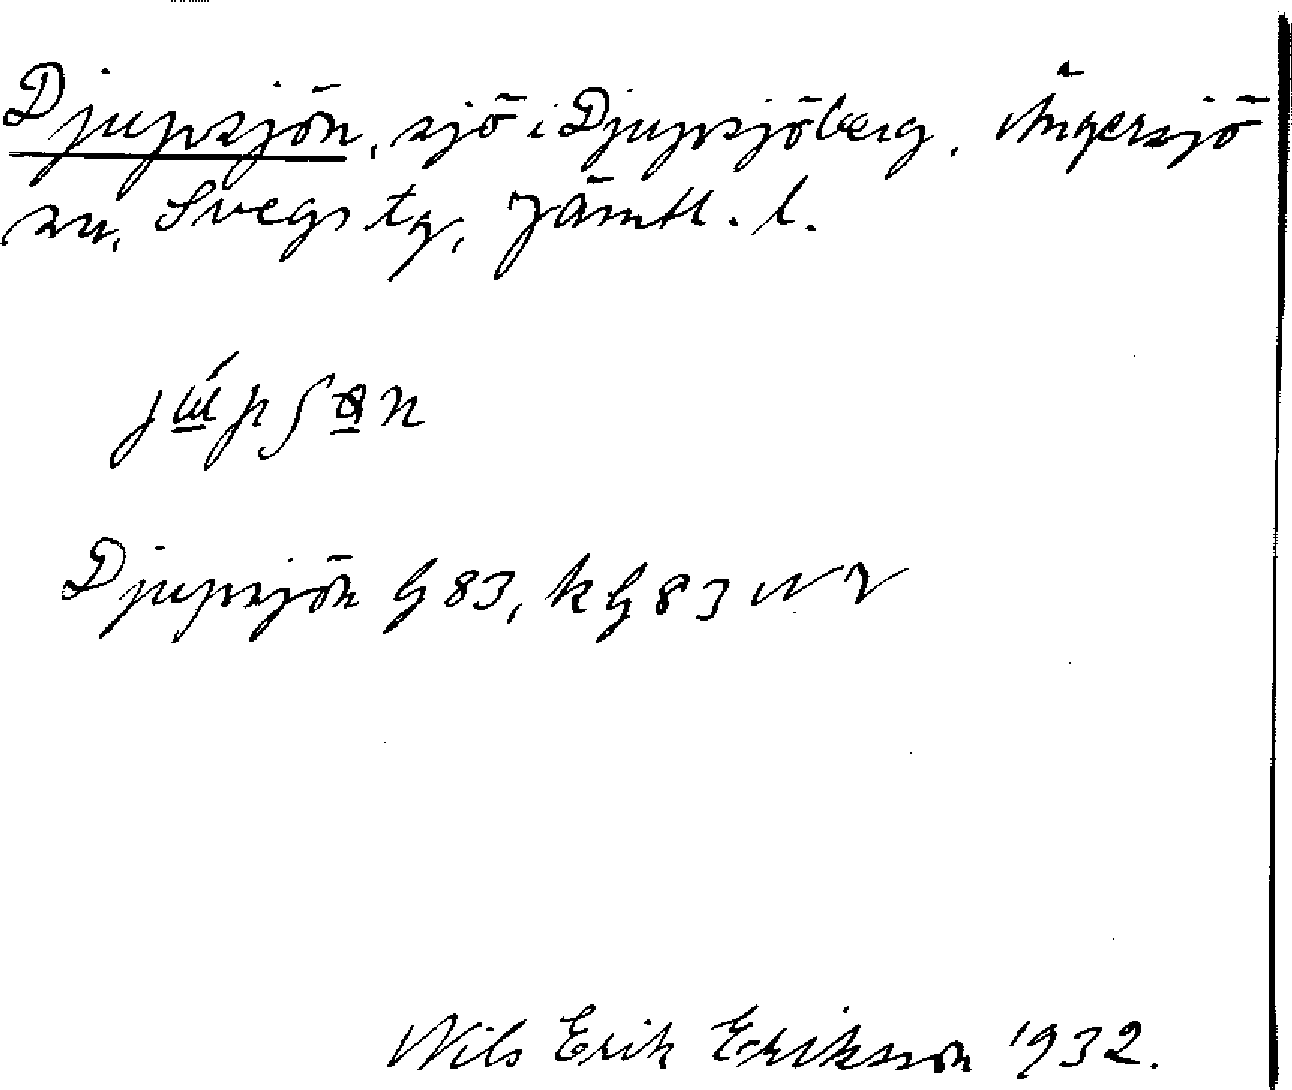 Djupsjön, sjö i Djupsjöberg, Ängersjö
sn, Svegs tg, Jämtl. l.
Djupsjön G 83, k G 83 NV
Nils Erik Eriksson 1932.